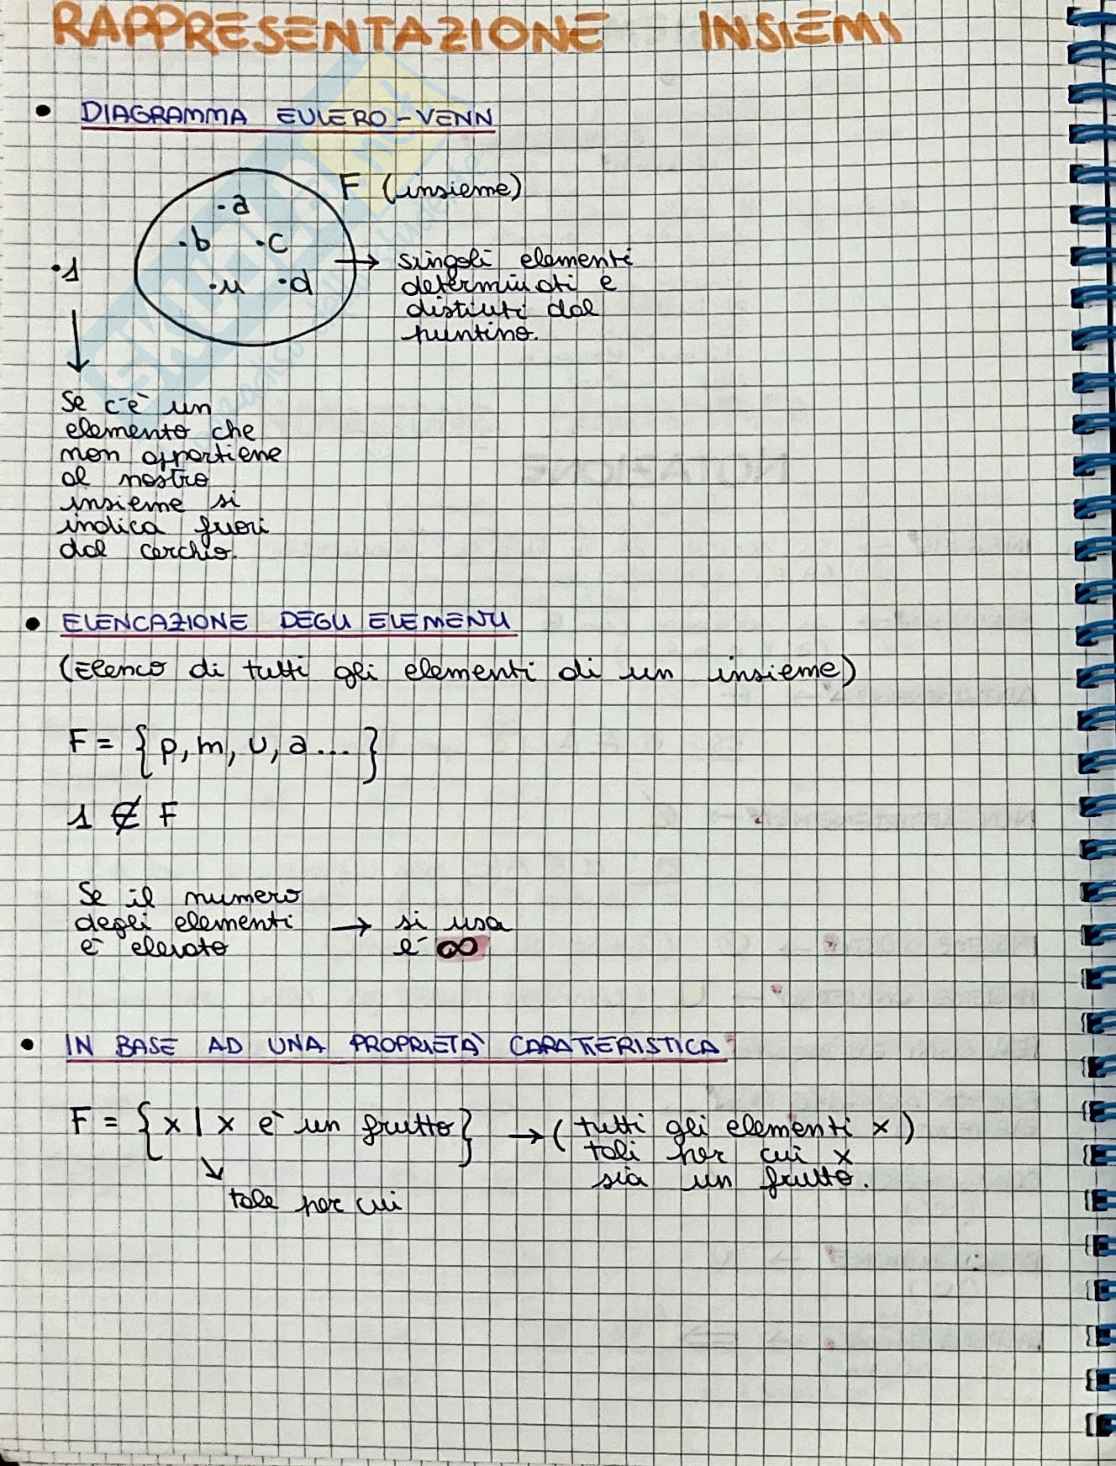 RAPPRESENTAZIONE INSIEMI
• DIAGRAMMA EULERO-VENN
F (insieme)
·a
·b ·c
·1
·u ·d
→ singoli elementi
determinati e
distinti dal
puntino.
Se c'è un
elemento che
non appartiene
al nostro
insieme si
indica fuori
dal cerchio.
• ELENCAZIONE DEGLI ELEMENTI
(Elenco di tutti gli elementi di un insieme)
F = { p, m, u, a ... }
1 ∉ F
Se il numero
degli elementi → si usa
è elevato l' ∞
• IN BASE AD UNA PROPRIETÀ CARATTERISTICA
F = { x | x è un frutto} → ( tutti gli elementi x )
tali per cui x
sia un frutto.
tale per cui
NOTAZIONE